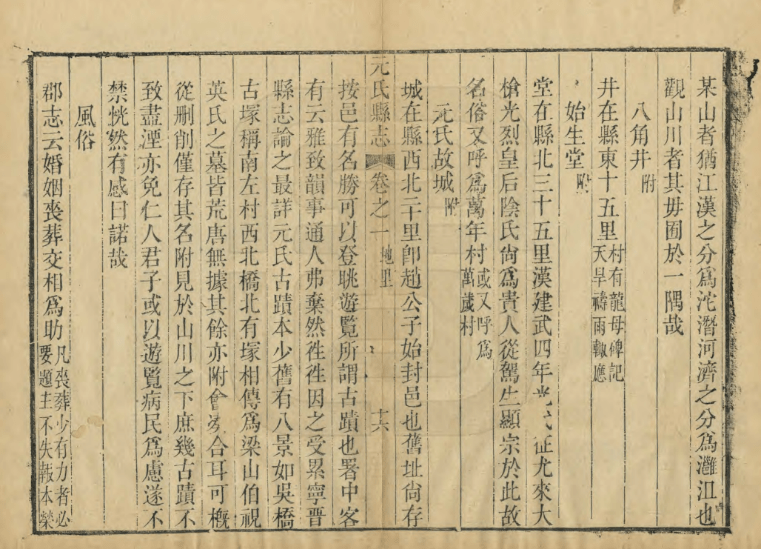 某山者猶江漢之分爲沱潛河濟之分爲灉沮也
觀山川者其毋囿於一隅哉
八角井附
井在縣東十五里村有龍母碑記天旱禱雨輒應
始生堂附
堂在縣北三十五里漢建武四年光武征尤來大
槍光烈皇后陰氏尙爲貴人從駕生顯宗於此故
名俗又呼爲萬年村或又呼爲萬歲村
元氏故城附
城在縣西北二十里卽趙公子始封邑也舊址尙存
元氏縣志 卷之一 地里 十六
按邑有名勝可以登眺遊覽所謂古蹟也畧中客
有云雅致韻事通人弗棄然徃徃因之受累寧晋
縣志論之最詳元氏古蹟本少舊有八景如吳橋
古塚稱南左村西北橋北有塚相傳爲梁山伯祝
英氏之墓皆荒唐無據其餘亦附會牽合耳可槪
從刪削僅存其名附見於山川之下庶幾古蹟不
致盡湮亦免仁人君子或以遊覽病民爲慮遂不
禁恍然有感曰諾哉
風俗
郡志云婚姻喪葬交相爲助凡喪葬少有力者必要題主不失報本榮